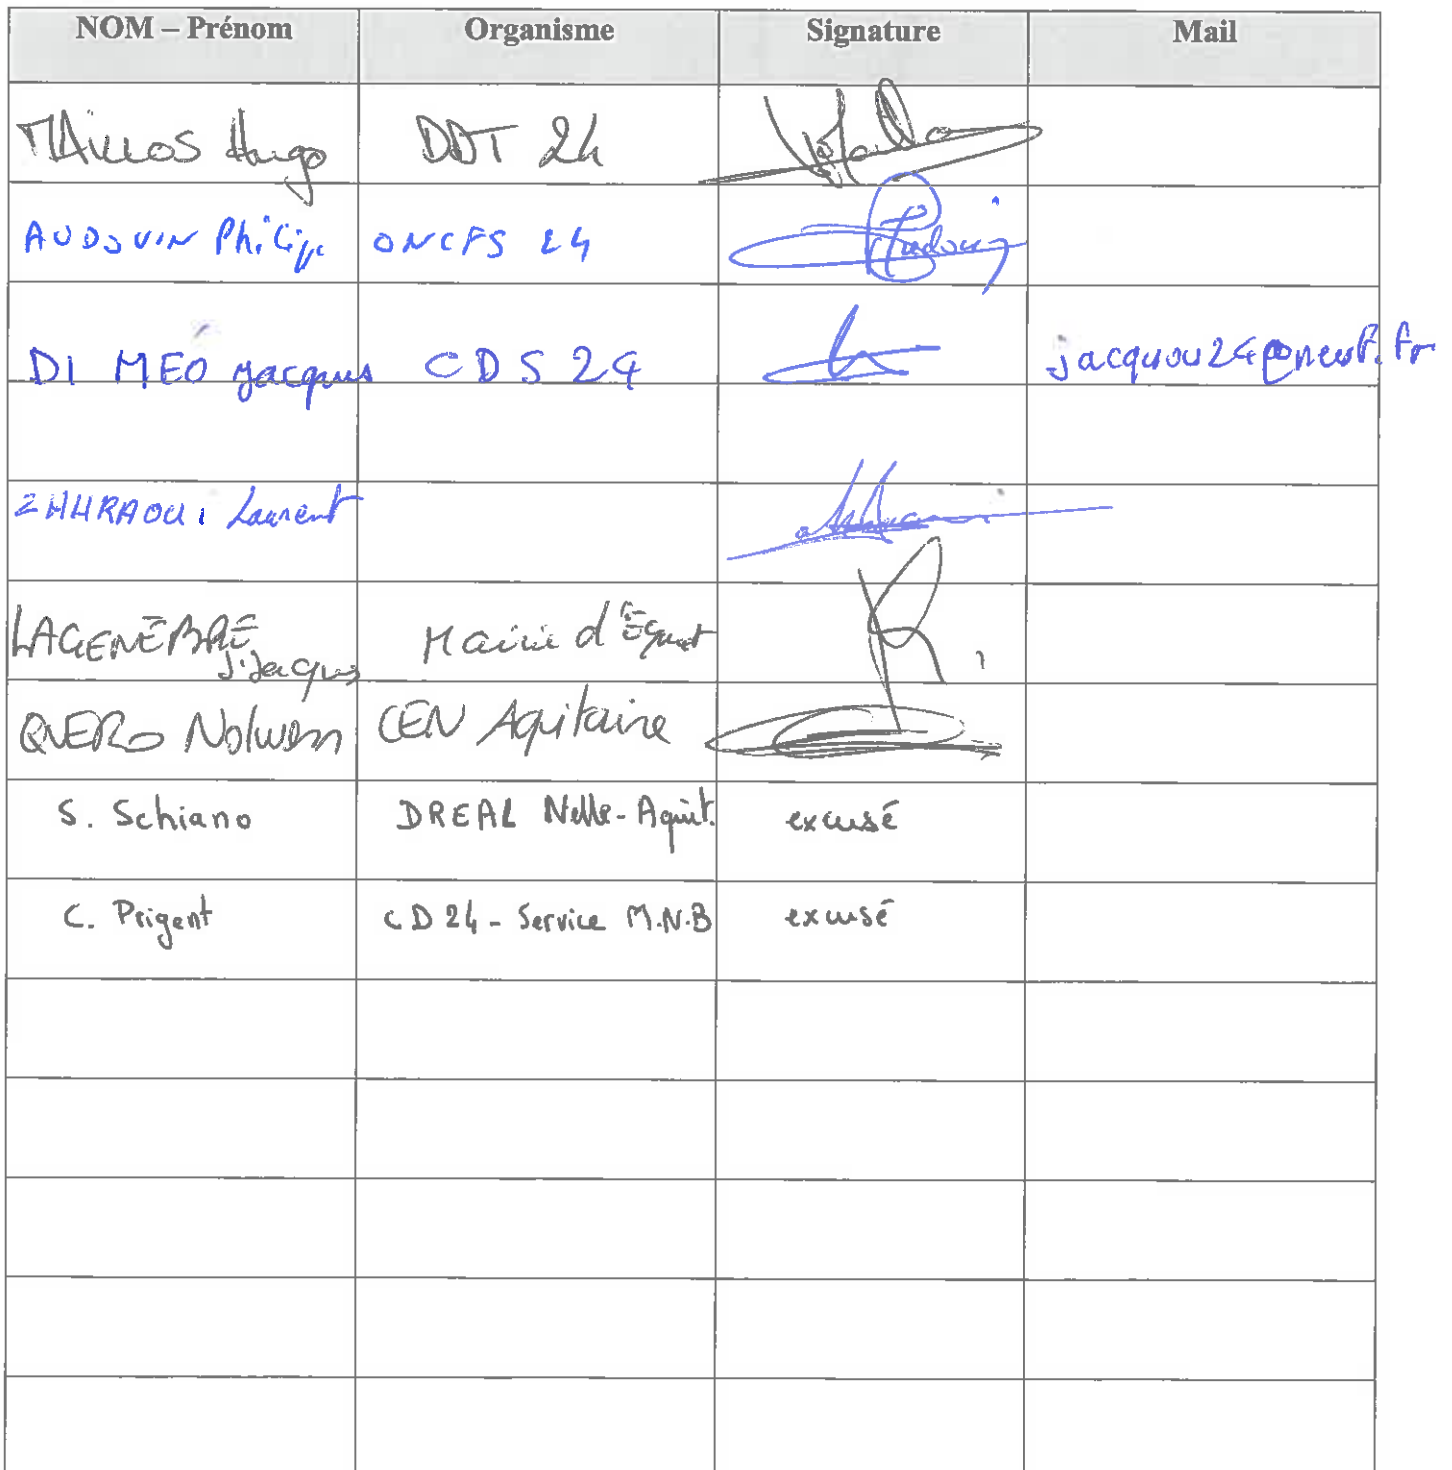 NOM – Prénom Organisme Signature Mail
MAILLOS Hugo DDT 24
AUDOUIN Philippe ONCFS 24
DI MEO Jacques CDS 24 jacquou24@neuf.fr
Laurent
LAGENÈBRE J.Jacques Mairie d'
QUERO Nolwenn CEN Aquitaine
S. Schiano DREAL Nelle-Aquit. excusé
C. Prigent CD24 - Service M.N.B excusé